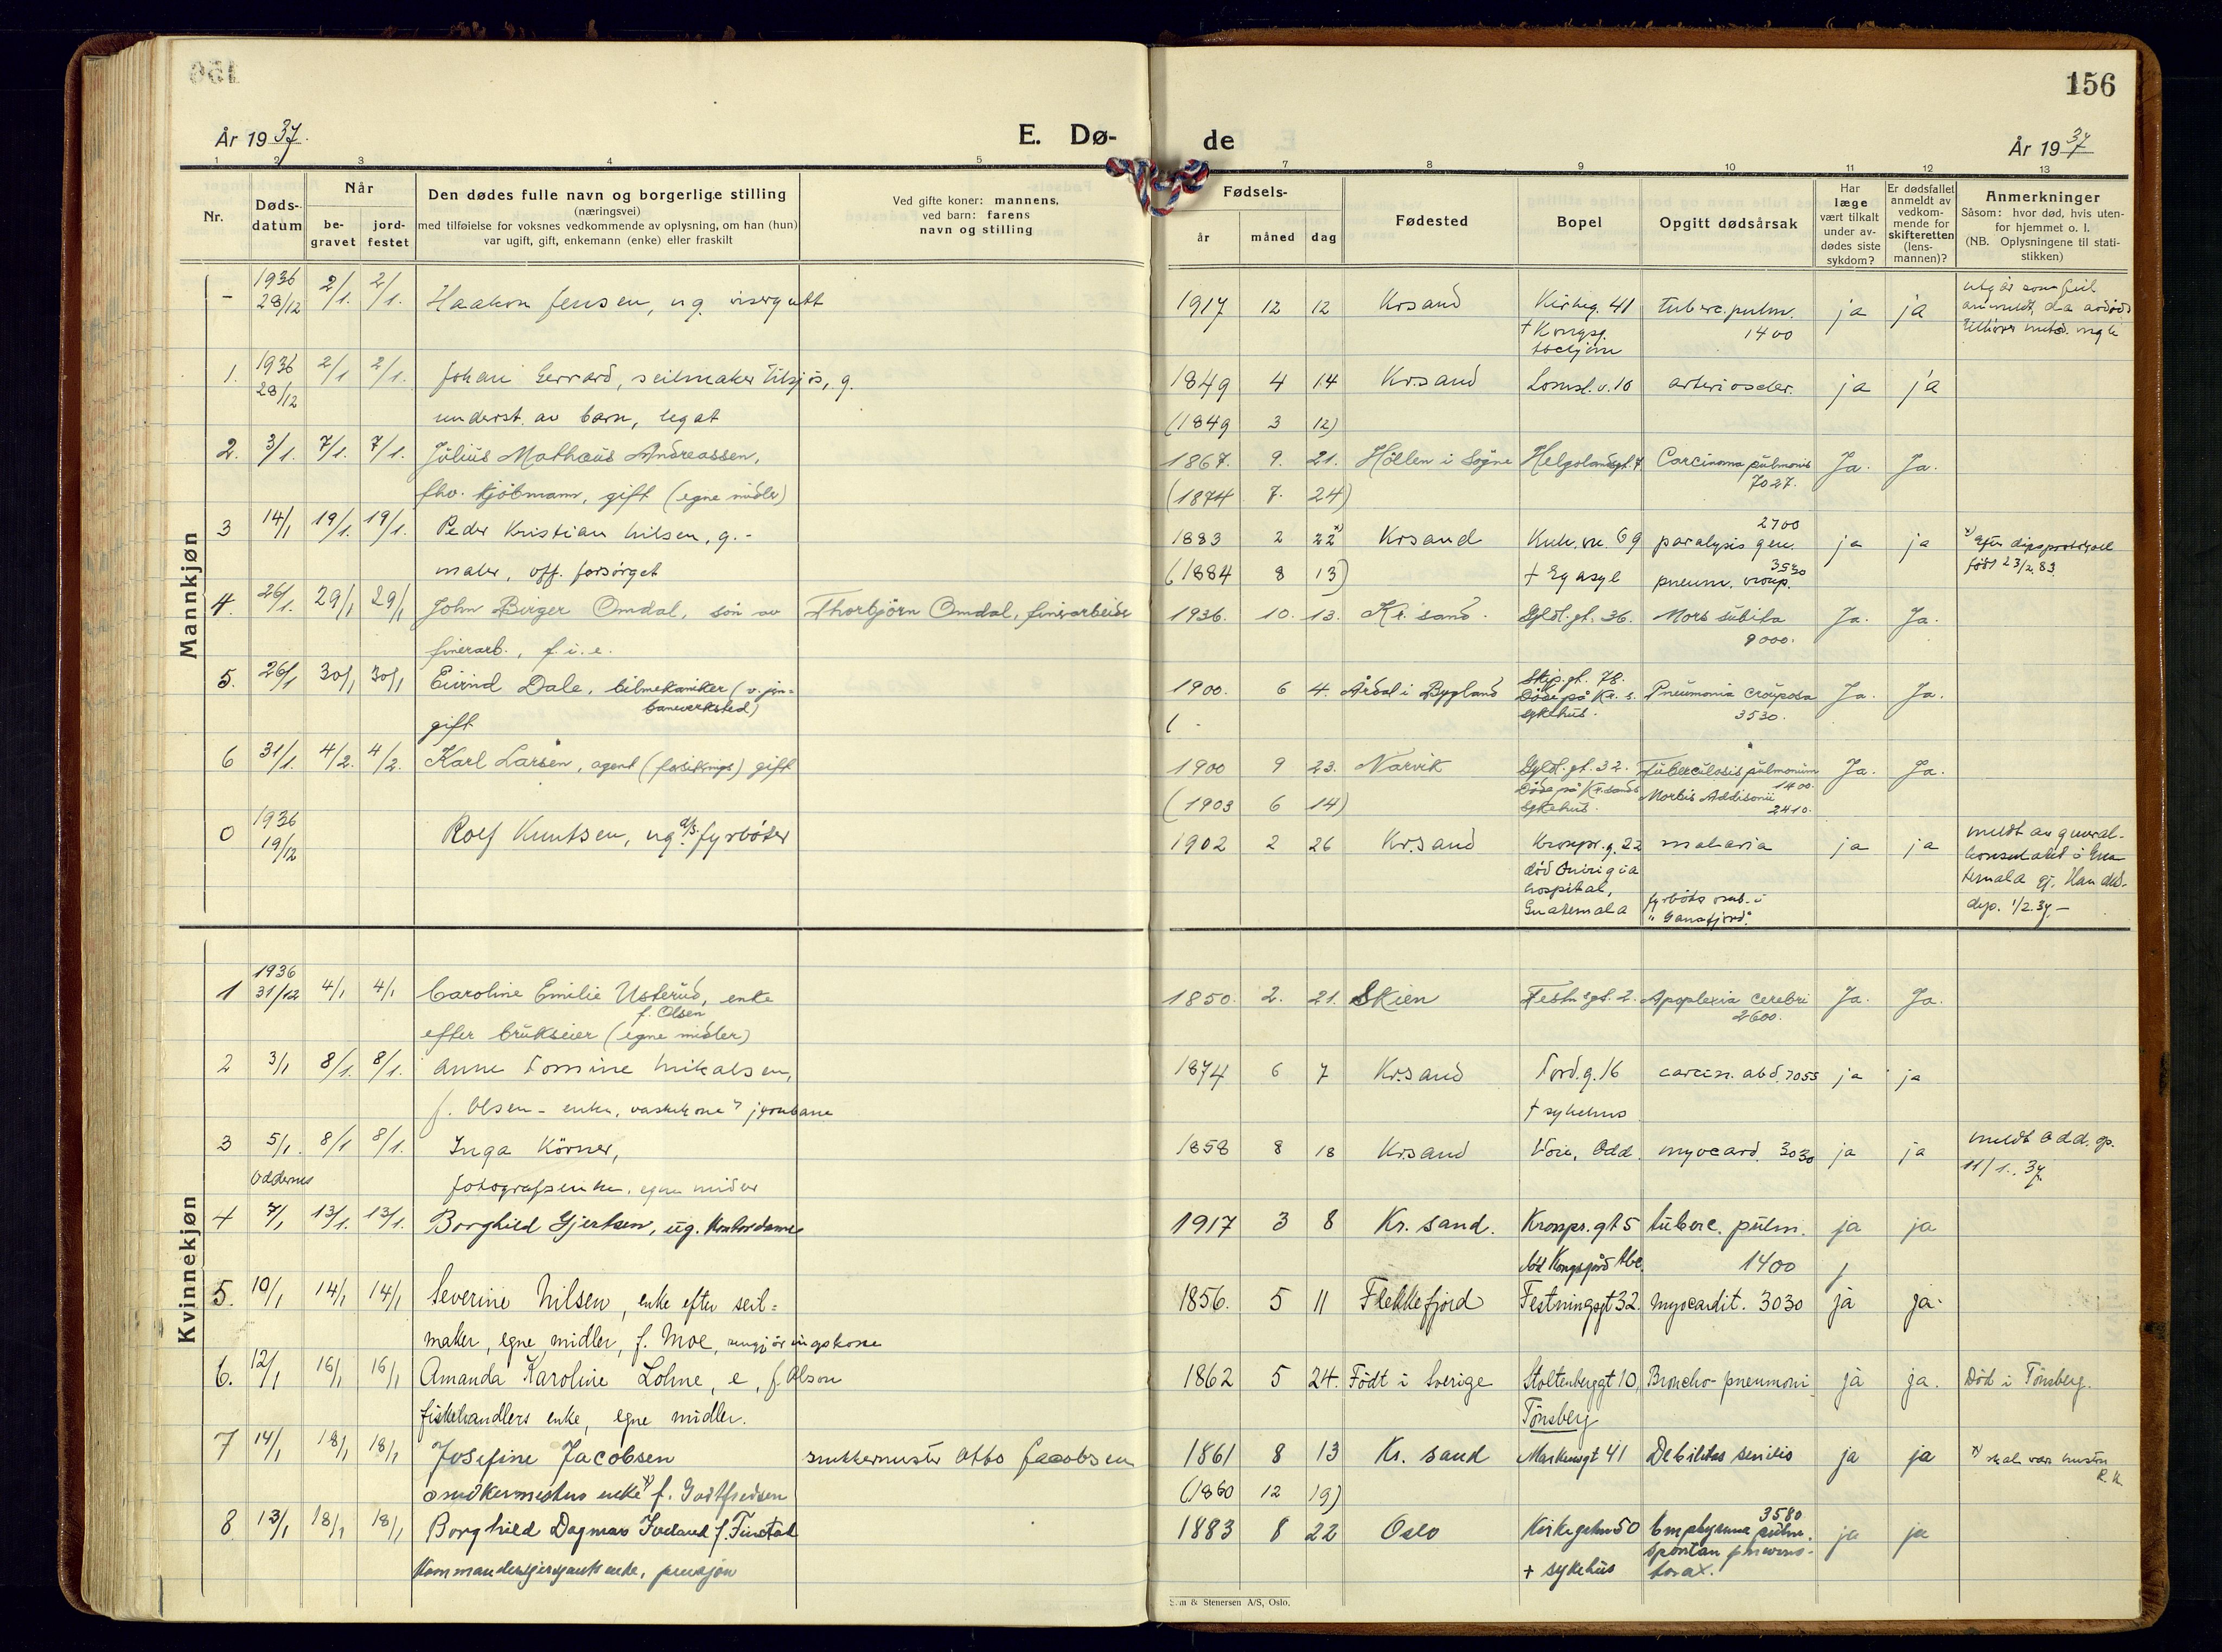 156
År 1937.
E. Dø-
de
År 1937
1 2 3 4 5 7 8 9 10 11 12 13
Nr.
Døds-
datum
Når
be-
gravet
jord-
festet
Den dødes fulle navn og borgerlige stilling
(næringsvei)
med tilføielse for voksnes vedkommende av oplysning, om han (hun)
var ugift, gift, enkemann (enke) eller fraskilt
Ved gifte koner: mannens,
ved barn: farens
navn og stilling
Fødsels-
år måned dag
Fødested
Bopel
Opgitt dødsårsak
Har
læge
vært tilkalt
under av-
dødes siste
sykdom?
Er dødsfallet
anmeldt av
vedkom-
mende for
skifteretten
(lens-
mannen)?
Anmerkninger
Såsom: hvor død, hvis uten-
for hjemmet o. l.
(NB. Oplysningene til stati-
stikken)
Mannkjøn
- 1936 28/12 2/1. 2/1. Haakon Jensen, ug. visergutt 1917 12 12 Krsand Kirkeg. 41 tuberc. pulm. ja ja
1400
1. 1936 28/12 2/1 2/1. Johan Gerrard, seilmaker tilsjøs, g. 1849 4 14 Krsand 10 arterioscler. ja ja
underst. av barn, legat (1849 3 12)
2. 3/1. 7/1. 7/1. Julius Mathæus Andreassen, 1867. 9. 21. Höllen i Søgne Helgolandsgt. 7 Carcinoma pulmonis Ja. Ja.
7027.
fhv. kjöbmann, gift (egne midler) (1874 7. 24)
3 14/1 19/1. 19/1. Peder Kristian Nilsen, g. - 1883 2 22 x) Krsand 69 paralysis gen. 2700 ja ja
maler, off. forsørget (1884 8 13) + Eg asyl pneum. croup. 3530 født 23/2.83.
4. 26/1. 29/1 29/1 John Birger Omdal, sön av Thorbjörn Omdal, finerarbeider 1936. 10. 13. Kr. sand. Gyld. gt. 36. Mors subita Ja. Ja.
9000.
finerarb., f. i. e.
5. 26/1 30/1 30/1 Eivind Dale, bilmekaniker (v. jern-
baneverksted)
gift 1900. 6 4. Årdal i Bygland Skip. gt. 78. Pneumonia crouposa Ja. Ja.
Döde på Kr. s. 3530.
sykehus.
6 31/1. 4/2. 4/2. Karl Larsen, agent (forsikrings) gift 1900 9 23. Narvik Gyld. gt. 32. Tuberculosis pulmonum Ja. Ja.
1400.
Döde på Kr.sands Morbis Addisonii
sykehus. 2410.
(1903 6 14)
0 1936 19/12 Rolf Knutsen, ug. d/s. fyrbøter 1902 2 26 Krsand Kronpr. g. 22 malaria ja ja
død
hospital,
Guatemala
meldt av general-
konsulatet i Gua-
temala
Kvinnekjøn
1 1936 31/12 4/1 4/1 Caroline Emilie Usterud, enke 1850. 2. 21. Skien Festn.gt. 2. Apoplexia cerebri Ja. Ja.
f. Olsen 2600.
efter brukseier (egne midler)
2 3/1 8/1. 8/1. Anne Tomine Mikalsen, 1874 6 7 Krsand Tord. g. 16 carcin. abd. 7055 ja ja
f. Olsen - enke, vaskekone v jernbane + sykehus
3 5/1. 8/1 8/1. Inga Körner, 1858 8 18 Krsand Voie, Odd. myocard. 3030 ja ja meldt Odd. sp.
11/1. 37.
Oddernes fotografsenke, egne midler
4 7/1 13/1. 13/1. Borghild Gjertsen, ug. kontordame 1917 3 8 Kr. sand. Kronpr. gt 5 tuberc. pulm. ja ja
død Kongsgård tbc. 1400
5. 10/1 14/1 14/1 Severine Nilsen, enke efter seil- 1856. 5 11 Flekkefjord Festningsgt 32. myocardit. 3030 ja ja.
maker, egne midler, f. Moe, rengjøringskone
6. 12/1 16/1 16/1 Amanda Karoline Lohne, e, f. Olson 1862 5 24. Födt i Sverige Stoltenberggt 10, Broncho-pneumoni ja ja. Død i Tönsberg.
fiskehandlers enke, egne midler. Tönsberg
7 14/1 18/1 18/1 Josefine Jacobsen snekkermester Otto Jacobsen 1861 8 13 Kr. sand Markensgt 41 Debilitas senilis ja ja x) skal være hustru
snekkermesters enke x) f. Gottfredsen (1860 12 19)
8 13/1 18/1 18/1 Borghild Dagmar Iveland f. Finstad 1883 8 22 Oslo Kirkegaten 50 Emphysema pulm. 3580 ja ja
kommandersergeants enke, pensjon + sykehus spontan pneumo-
torax.
S.m & Stenersen A/S, Oslo.